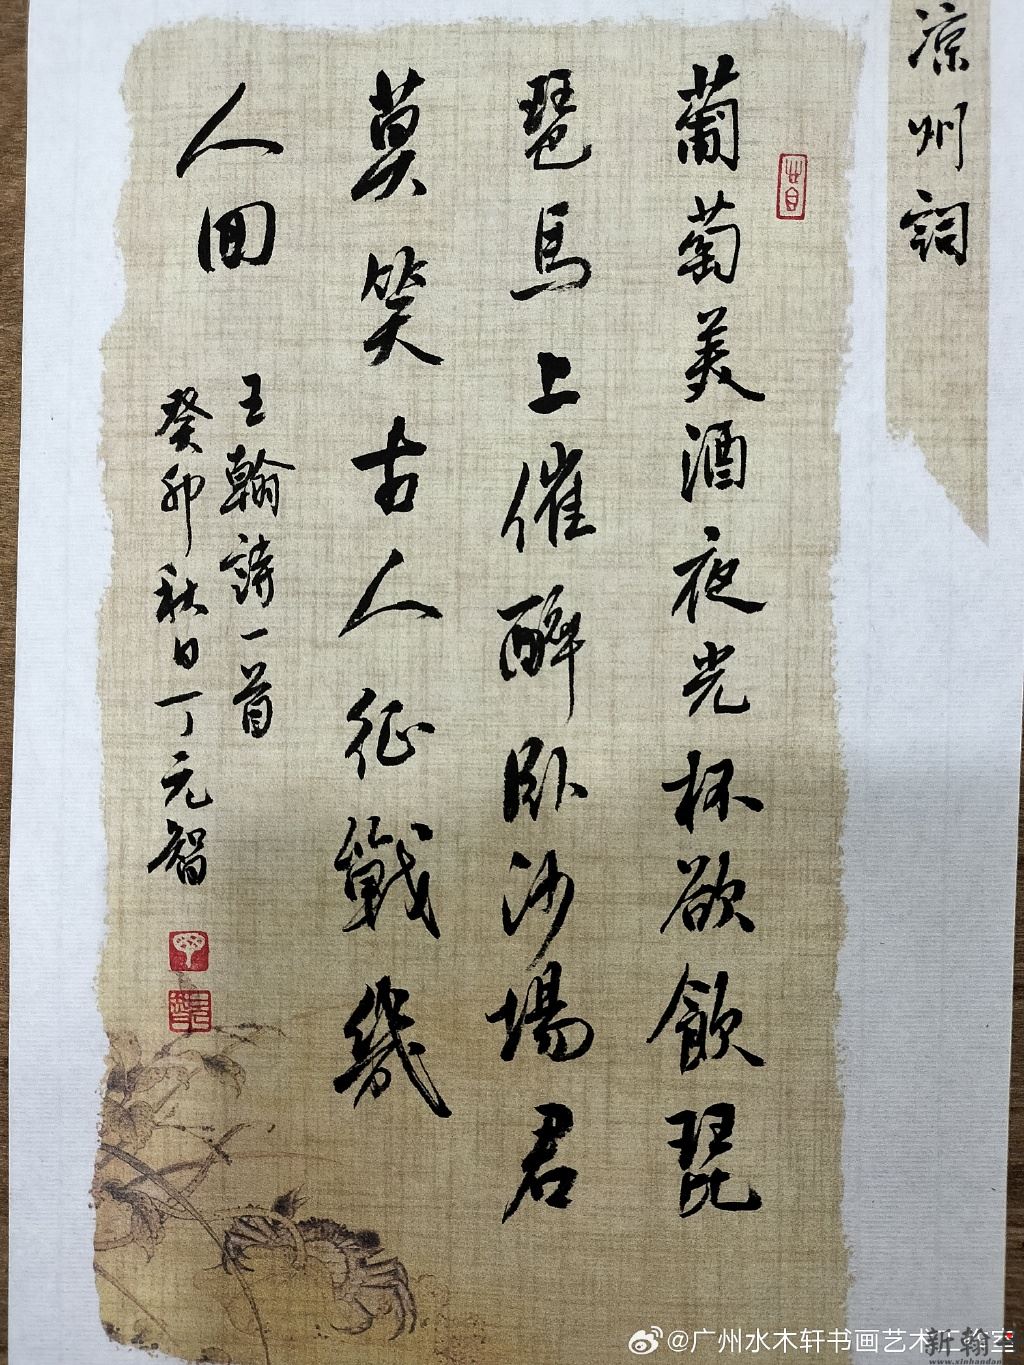 涼州詞
葡萄美酒夜光杯欲飲琵
琶馬上催醉卧沙場君
莫笑古人征戰幾
人囬
王翰詩一首
癸卯秋日丁元智
@广州水木轩书画艺术工作室
新翰